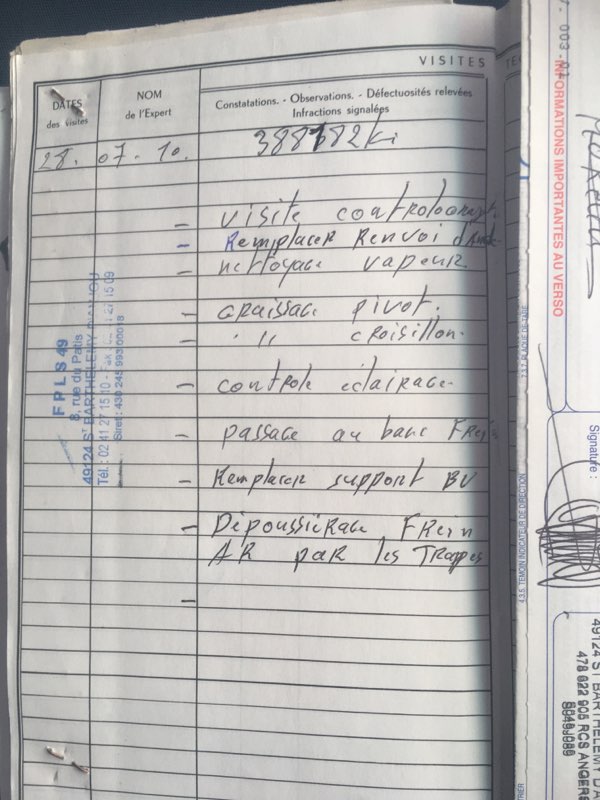 VISITES
DATES
des visites
NOM
de l'Expert
Constatations. - Observations. - Défectuosités relevées
Infractions signalées
28. 07. 10.
388782 ki
- visite
- Remplacer Renvoi
- nettoyage vapeur
- graissage pivot.
- " croisillon.
- controle éclairage.
- passage au banc Frein
- Remplacer support BV
- Dépoussiérage Frein
AR par les Trappes
-
FPLS 49
8, rue du Patis
49124 ST BARTHELEMY D'ANJOU
Tél : 02 41 27 15 10 - 15 09
Siret : 430 245 993 00018
TE
003
INFORMATIONS IMPORTANTES AU VERSO
2.3.1. PLAQUE DE TARE
Signature :
4.3.5. TEMOIN INDICATEUR DE DIRECTION
49124 ST BARTHELEMY D'A
478 622 905 RCS ANGERS